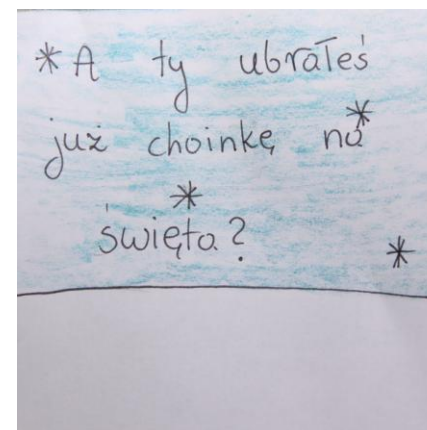 A ty ubrałeś
już choinkę na
święta?